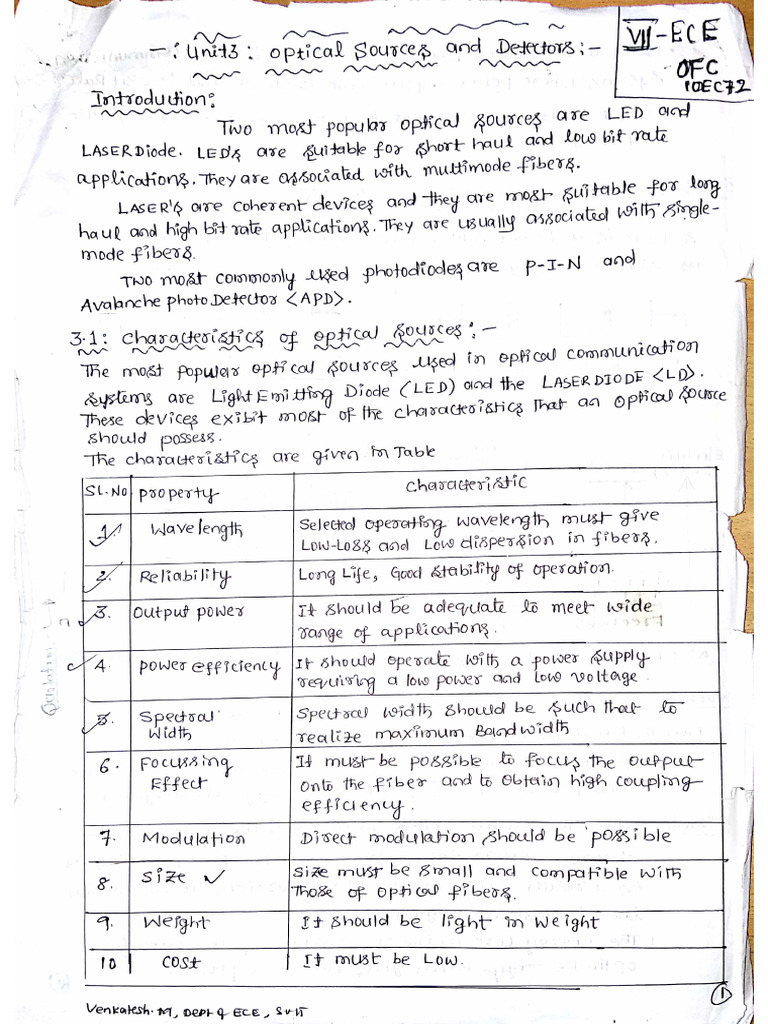 -: Unit3: Optical Sources and Detectors:-
VII-ECE
OFC
10EC72
Introduction:
Two most popular optical sources are LED and
LASER Diode. LED's are suitable for short haul and low bit rate
applications. They are associated with multimode fibers.
LASER's are coherent devices and they are most suitable for long
haul and high bit rate applications. They are usually associated with single-
mode fibers.
Two most commonly used photodiodes are P-I-N and
Avalanche photo Detector <APD>.
3.1: Characteristics of optical Sources:-
The most popular optical sources used in optical communication
systems are Light Emitting Diode (LED) and the LASER DIODE <LD>.
These devices exibit most of the characteristics that an optical source
should possess.
The characteristics are given in Table
SL.No property Characteristic
1. Wavelength Selected operating wavelength must give
Low-Loss and Low dispersion in fibers.
2. Reliability Long Life, Good stability of operation.
3. Output power It should be adequate to meet wide
range of applications.
4. power efficiency It should operate with a power supply
requiring a low power and low voltage.
5. Spectral Width Spectral width should be such that to
realize maximum Bandwidth
6. Focussing Effect It must be possible to focus the output
onto the fiber and to obtain high coupling
efficiency.
7. Modulation Direct modulation should be possible
8. Size Size must be small and compatible with
those of optical fibers.
9. Weight It should be light in weight
10 cost It must be Low.
1
Venkatesh.M, Dept of ECE, SVIT